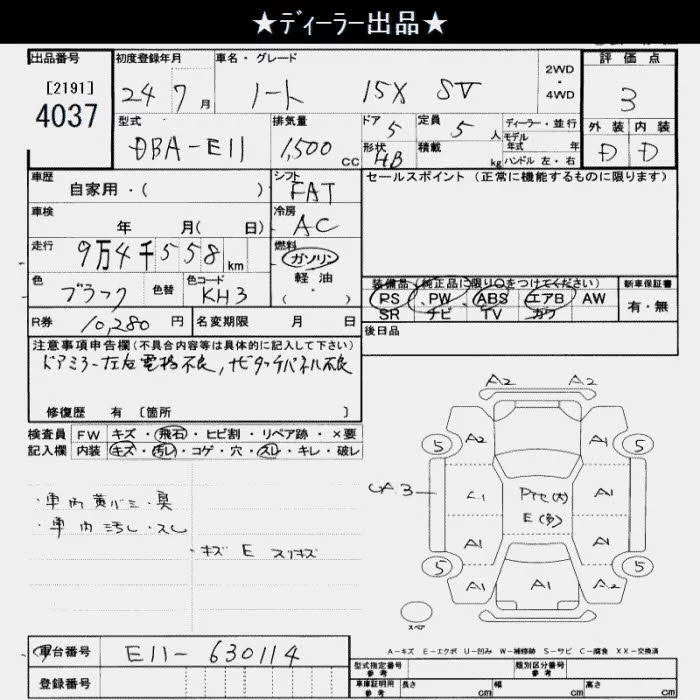 ★ディーラー出品★
出品番号 初度登録年月 車名・グレード 2WD・4WD 評価点
[2191]
4037
24年 7月 ノート 15X SV 3
型式 排気量 ドア 定員 ディーラー・並行 外装 内装
DBA-E11 1,500cc 5 5人 モデル年式 年 D D
形状 積載 HB kg ハンドル 左・右
車歴 シフト セールスポイント (正常に機能するものに限ります)
自家用・( ) FAT
車検 冷房
年 月( 日) AC
走行 燃料
9万4千558km ガソリン
軽油
色 色替 色コード 装備品 (純正品に限り○をつけてください) 新車保証書
ブラック KH3 ( ) PS PW ABS エアB AW 有・無
SR ナビ TV カワ
R券 10,280円 名変期限 月 日 後日品
注意事項申告欄(不具合内容等は具体的に記入して下さい)
ドアミラー左右電格不良,ナビタッチパネル不良
修復歴 有 〔箇所 〕
検査員 FW キズ・飛石・ヒビ割・リペア跡・×要
記入欄 内装 キズ・汚レ・コゲ・穴・スレ・キレ・破レ
・車内黄バミ・臭
・車内汚レ・スレ
・キズ E スリキズ
A2 A2
5 A2 A1 5
A3 A1
A1 A1
5 A1 A1 A2 5
E(多)
スペア
A-キズ E-エクボ U-凹み W-補修跡 S-サビ C-腐食 XX-交換済
車台番号 E11-630114
登録番号
型式指定番号 参考 類別区分番号 参考
車庫証明用 参考 長さ cm 幅 cm 高さ cm